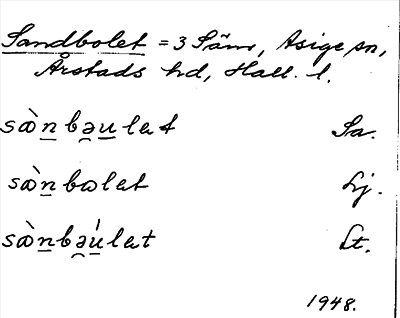 Sandbolet = 3 Säm, Asige sn,
Årstads hd, Hall. l.
sæ̀n̲bə̯u̲let Sa.
sæ̀nbωlet Lj.
sæ̀n̲bə̯ú̲let Lt.
1948.